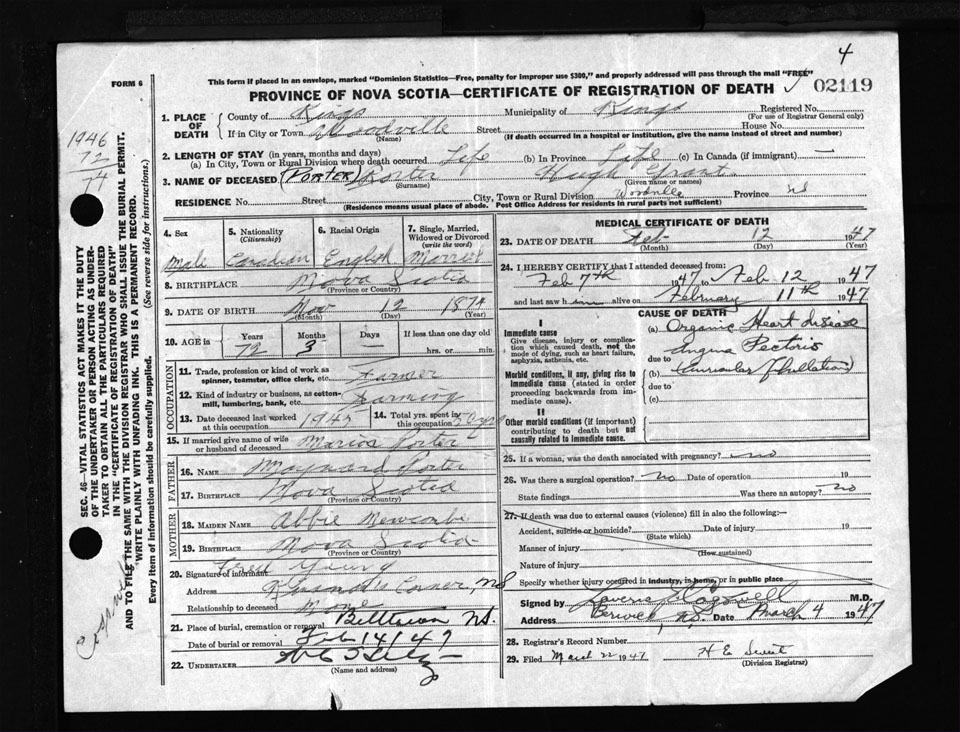 4
FORM 6
This form if placed in an envelope, marked "Dominion Statistics—Free, penalty for improper use $300," and properly addressed will pass through the mail "FREE"
02119
PROVINCE OF NOVA SCOTIA—CERTIFICATE OF REGISTRATION OF DEATH
1946
72
74
SEC. 46—VITAL STATISTICS ACT MAKES IT THE DUTY
OF THE UNDERTAKER OR PERSON ACTING AS UNDER-
TAKER TO OBTAIN ALL THE PARTICULARS REQUIRED
IN THE "CERTIFICATE OF REGISTRATION OF DEATH"
AND TO FILE THE SAME WITH THE DIVISION REGISTRAR WHO SHALL ISSUE THE BURIAL PERMIT.
WRITE PLAINLY WITH UNFADING INK. THIS IS A PERMANENT RECORD.
Every item of information should be carefully supplied. (See reverse side for instructions.)
1. PLACE OF DEATH
County of Kings Municipality of Kings Registered No.
(For use of Registrar General only)
If in City or Town Woodville Street House No.
(Name) (If death occurred in a hospital or institution, give the name instead of street and number)
2. LENGTH OF STAY (in years, months and days)
(a) In City, Town or Rural Division where death occurred Life (b) In Province Life (c) In Canada (if immigrant) —
3. NAME OF DECEASED (PORTER) Porter Hugh Grant
(Surname) (Given name or names)
RESIDENCE No. Street City, Town or Rural Division Woodville Province NS
(Residence means usual place of abode. Post Office Address for residents in rural parts not sufficient)
4. Sex Male
5. Nationality (Citizenship) Canadian
6. Racial Origin English
7. Single, Married, Widowed or Divorced (write the word) Married
8. BIRTHPLACE Nova Scotia
(Province or Country)
9. DATE OF BIRTH Nov 12 1874
(Month) (Day) (Year)
10. AGE in Years Months Days If less than one day old
72 3 — hrs. or min.
OCCUPATION
11. Trade, profession or kind of work as spinner, teamster, office clerk, etc. Farmer
12. Kind of industry or business, as cotton-mill, lumbering, bank, etc. Farming
13. Date deceased last worked at this occupation 1945
14. Total yrs. spent in this occupation 50 yrs
15. If married give name of wife or husband of deceased Marion Porter
FATHER
16. Name Maynard Porter
17. Birthplace Nova Scotia
(Province or Country)
MOTHER
18. Maiden Name Abbie Newcombe
19. Birthplace Nova Scotia
(Province or Country)
20. Signature of informant Fred Young
Address Corner, NS
Relationship to deceased None
21. Place of burial, cremation or removal NS.
Date of burial or removal Feb 14/47
22. UNDERTAKER
(Name and address)
MEDICAL CERTIFICATE OF DEATH
23. DATE OF DEATH Feb 12 1947
(Month) (Day) (Year)
24. I HEREBY CERTIFY that I attended deceased from:
Feb 7th 1947 to Feb. 12 1947
and last saw him alive on February 11th 1947
CAUSE OF DEATH
I
Immediate cause
Give disease, injury or complication which caused death, not the mode of dying, such as heart failure, asphyxia, asthenia, etc.
(a) Organic Heart disease
Angina Pectoris
due to
Morbid conditions, if any, giving rise to immediate cause (stated in order proceeding backwards from immediate cause).
(b) Auricular fibrillation
due to
(c)
II
Other morbid conditions (if important) contributing to death but not causally related to immediate cause.
25. If a woman, was the death associated with pregnancy? no
26. Was there a surgical operation? no Date of operation 19
State findings Was there an autopsy? no
27. If death was due to external causes (violence) fill in also the following:—
Accident, suicide or homicide? Date of injury 19
(State which)
Manner of injury
(How sustained)
Nature of injury
Specify whether injury occurred in industry, in home, or in public place
Signed by M.D.
Address Berwick, N.S. Date March 4 1947
28. Registrar's Record Number
29. Filed March 22 1947 H E Swett
(Division Registrar)